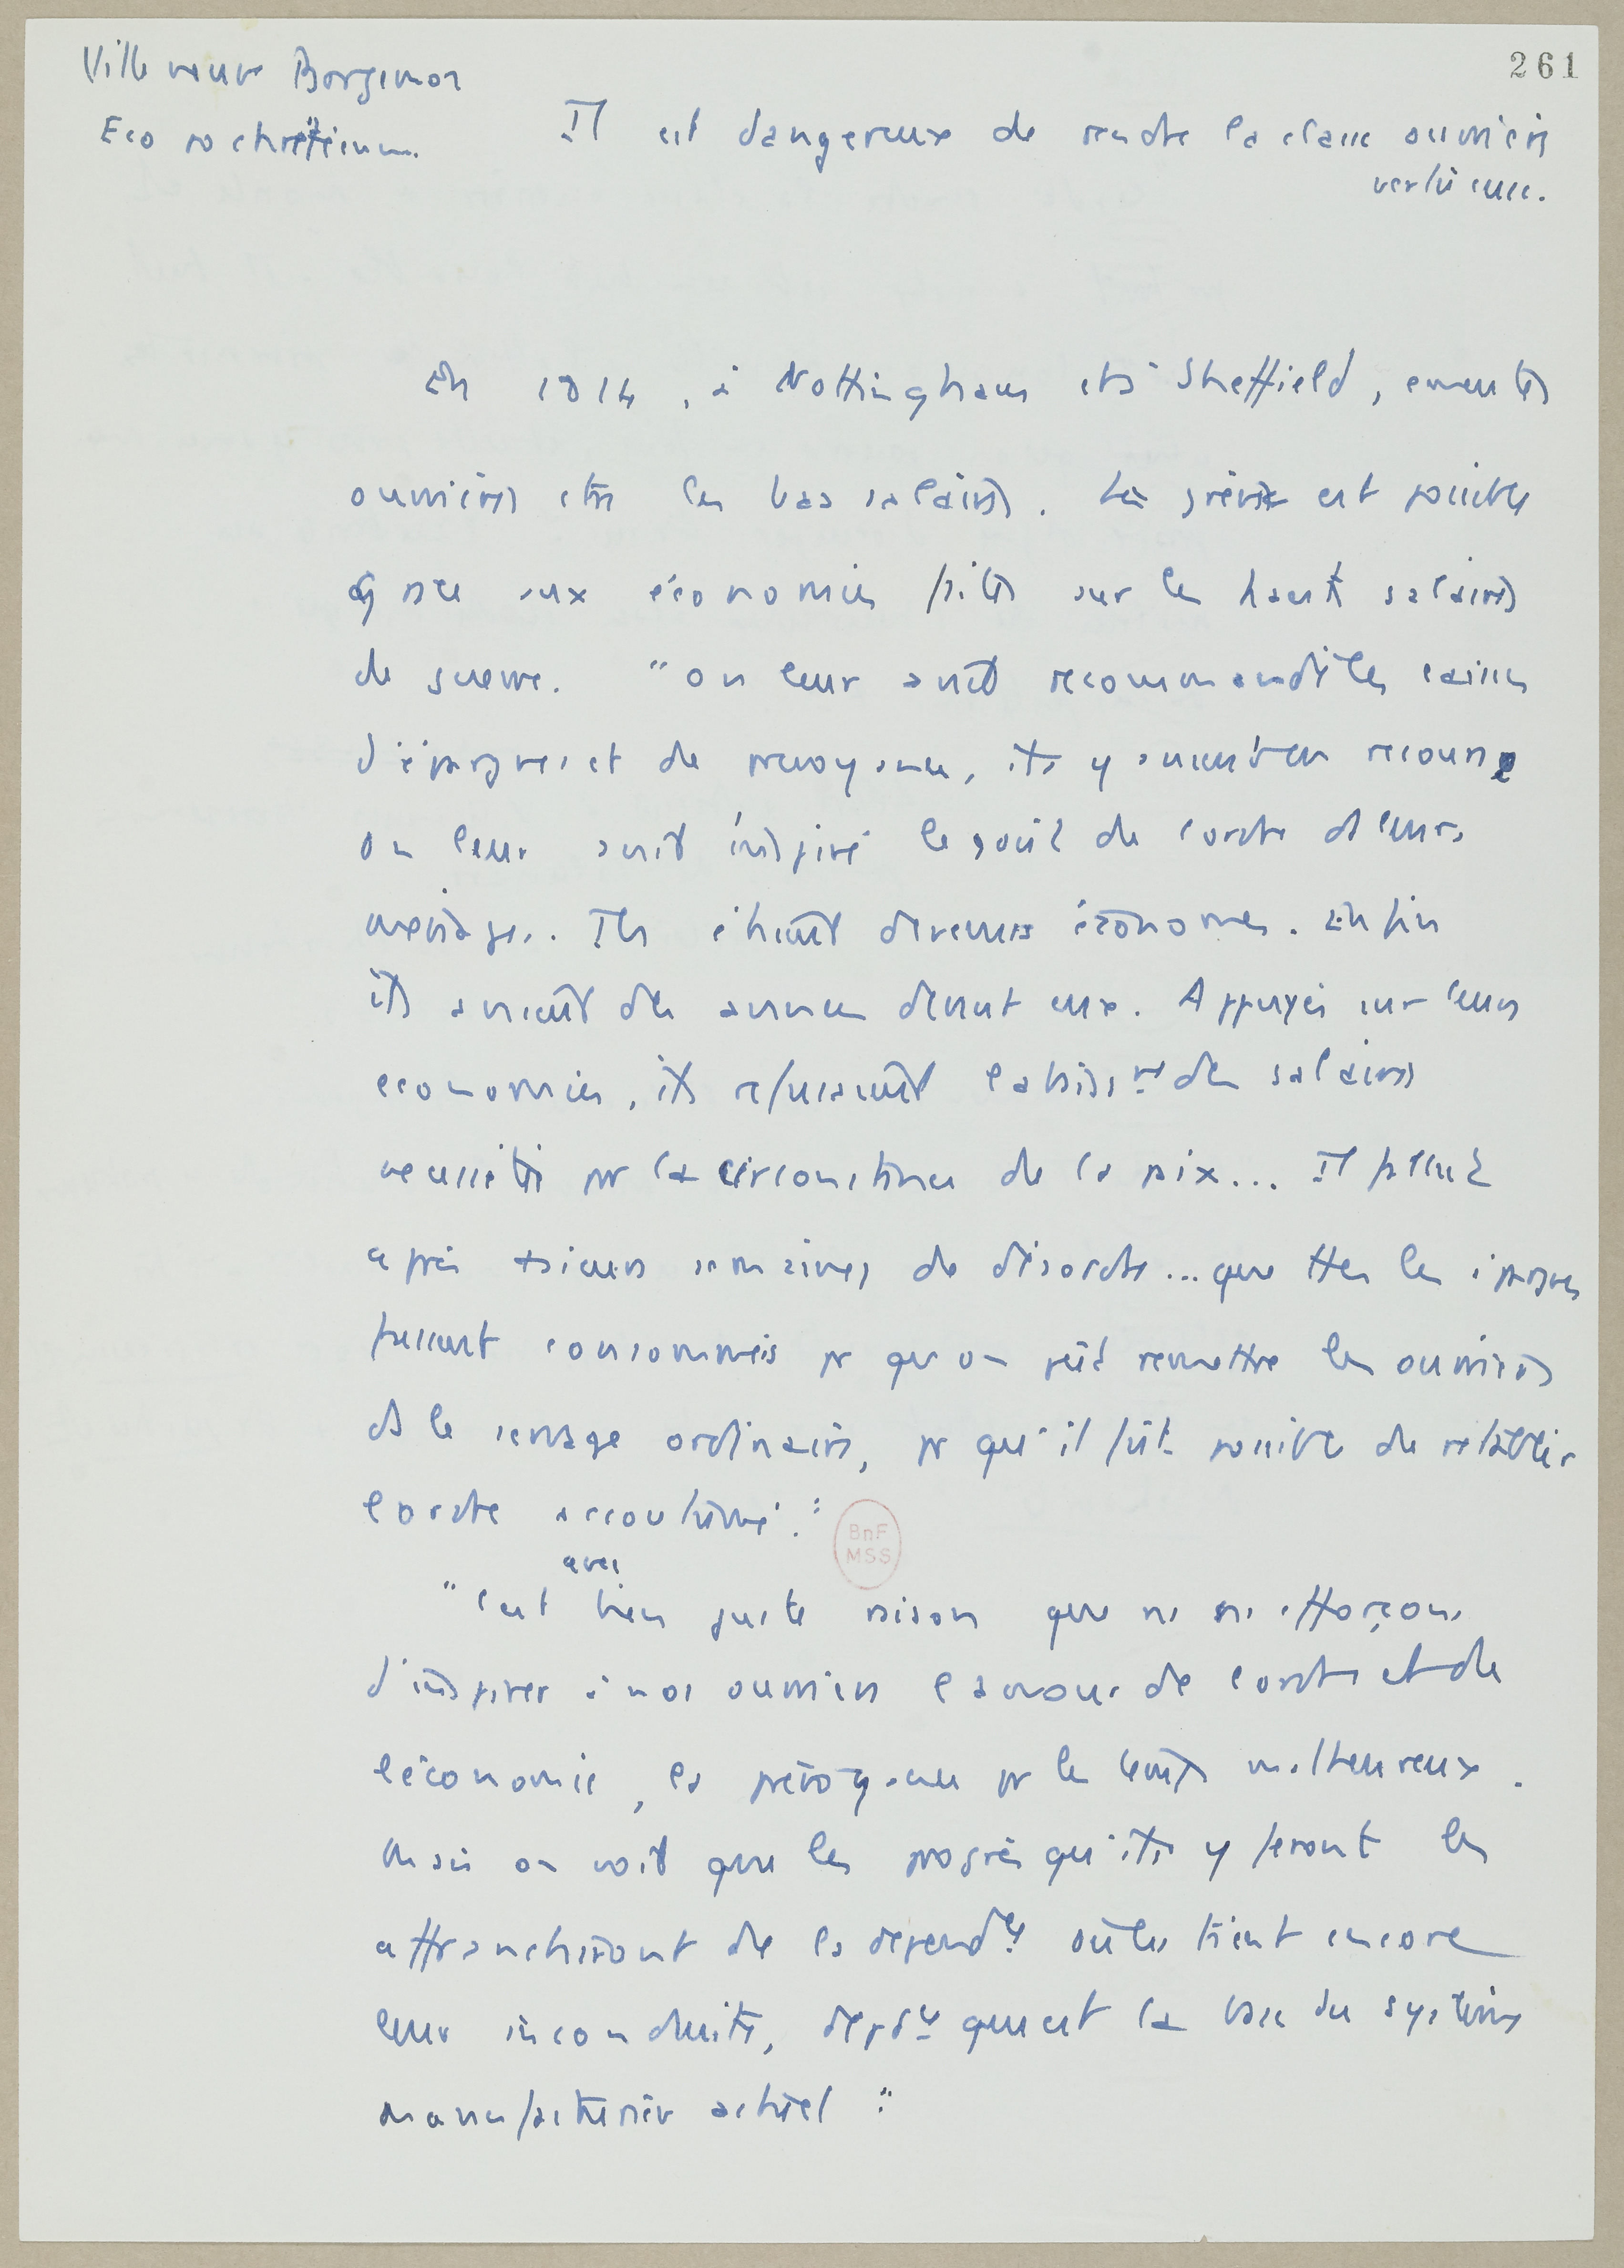 Villeneuve Bargemon
261
Eco po chrétienne.
Il est dangereux de rendre la classe ouvrière
vertueuse.
En 1814, à Nottingham et à Sheffield, emeutes
ouvrières ctre les bas salaires. La grève est possible
grace aux économies faites sur les hauts salaires
de guerre. "on leur avait recommandé les caisses
d'épargnes et de prevoyance, ils y avaient eu recours
on leur avait inspiré le goût de l'ordre ds leurs
ménages. Ils étaient devenus économes. Enfin
ils avaient des avances devant eux. Appuyés sur leurs
economies, ils refusaient l'abaisst des salaires
necessité pr la circonstance de la paix... Il fallut
après plusieurs semaines de désordre... que ttes les épargnes
fussent consommées pr qu'on pût remettre les ouvriers
ds le servage ordinaire, pr qu'il fût possible de rétablir
l'ordre accoutumé."
BnF
MSS
avec
"C'est bien juste raison que ns ns efforçons
d'inspirer à nos ouvriers l'amour de l'ordre et de
l'économie, la prévoyance pr les temps malheureux.
Mais on voit que les progrès qu'ils y feront les
affranchiront de la dépendce où les tient encore
leur inconduite, depdce qui est la base du système
manufacturier actuel."